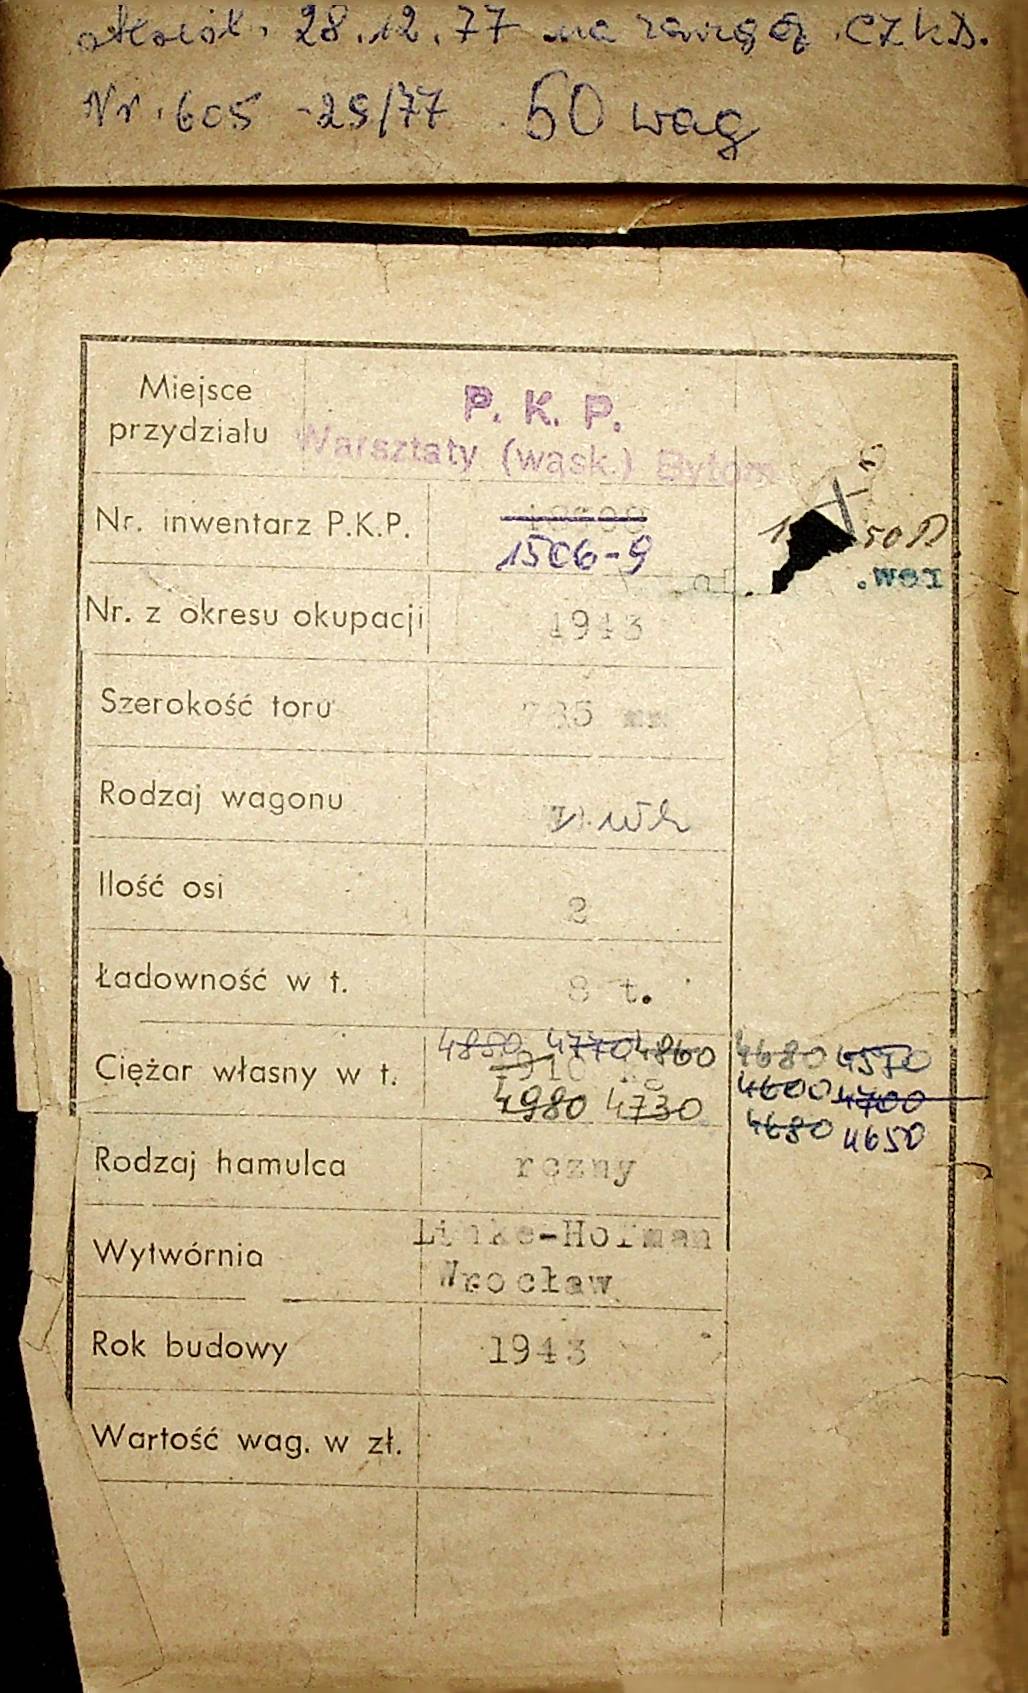 28.12.77 na
Nr. 605 -29/77 50 wag
Miejsce przydziału
P. K. P.
Warsztaty (wąsk.) Bytom
Nr. inwentarz P.K.P.
1506-9
Nr. z okresu okupacji 1943
Szerokość toru 785 mm
Rodzaj wagonu
Ilość osi 2
Ładowność w t. 8 t.
4850 4770 4860 4680 4570
Ciężar własny w t. 4600 4700
4980 4730 4680 4650
Rodzaj hamulca ręzny
Wytwórnia Linke-Hofman
Wrocław
Rok budowy 1943
Wartość wag. w zł.